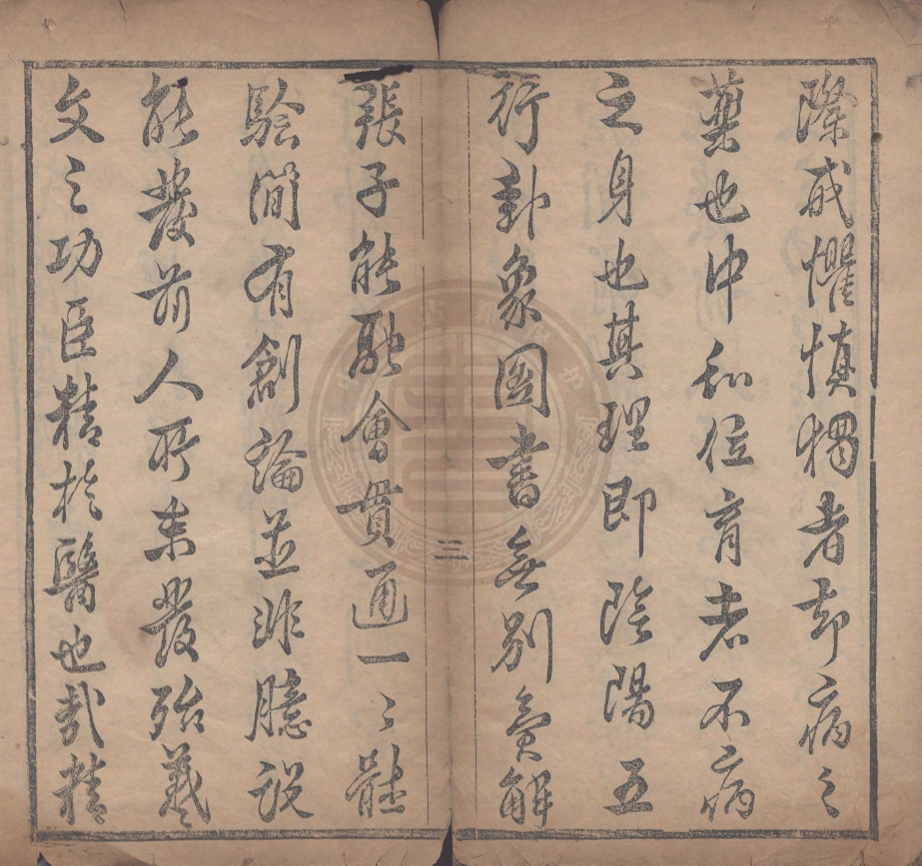 際戒懼慎獨者却病之
藥也中和位育者不病
之身也其理即陰陽五
行卦象圖書無別解
三
張子能融會貫通一〻體
驗間有創論並非臆設
能發前人所未發殆羲
文之功臣精於醫也哉精